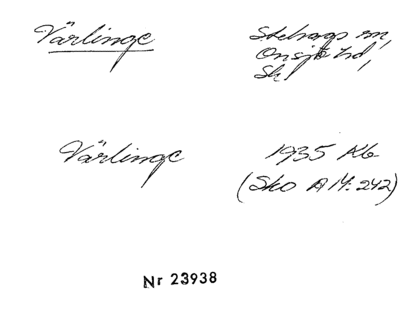 Värlinge
Stehags sn,
Onsjö hd,
Sk.
Värlinge 1935 Kb
(Sko A M: 242)
Nr 23938